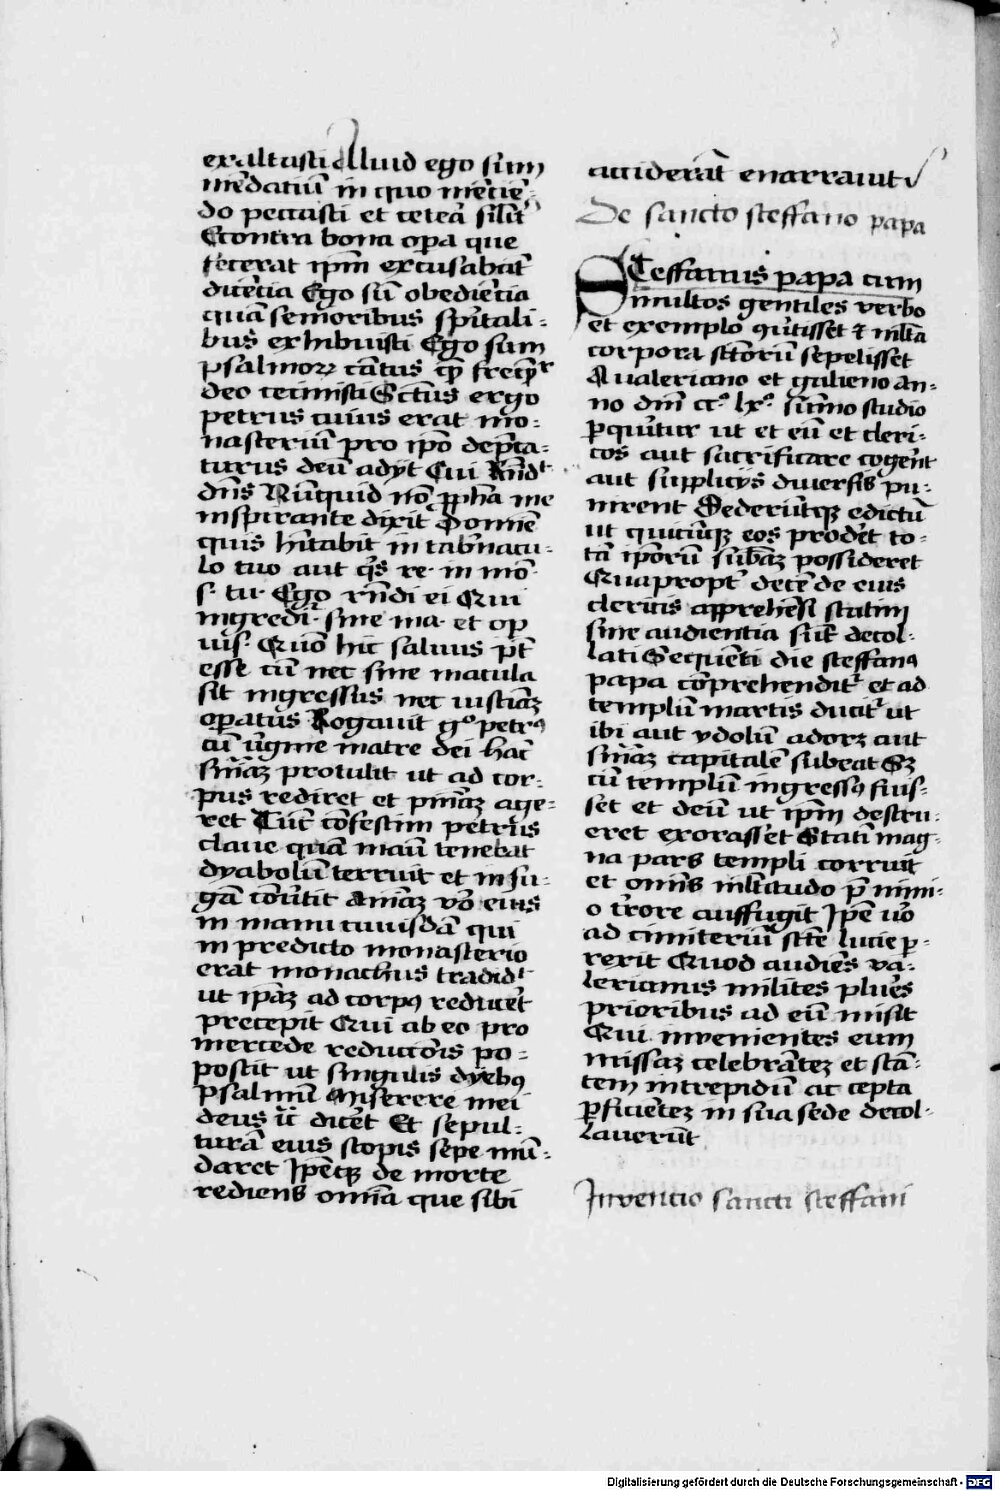 exaltasti Aliud ego sum
mēdatiū in quo mēcie͞n
do peccasti et cetea͞ silit͞
Econtra bona op̄a que
fecerat ip̄m excusabāt
dice͞cia Ego sū obedie͞cia
quā senioribus sp̄itali-
bus exhibuisti Ego sum
psalmoꝝ cātus q̄ freq̄nt͛
deo cecinisti Sct͞us ergo
petrus cuius erat mo-
nasteriū pro ip̄o dep̄ca-
turus deū adyt Cui Rn̄dt
dn̄s Nūquid nō p̄pha͞ me
inspirante dixit Domine͞
quis hītabit in tab͛nacu-
lo tuo aut q̄s re· in mō
s· tu· Ego rn̄di ei Qui
ingredi· sine ma· et op̄
ius· Quō hic saluus pt͞
esse cū nec sine macula
sit ingressus nec iusticiā
op̄atus Rogauit gº petrꝰ
cū v͛gine matre dei hāc
sn̄iaꝫ protulit ut ad cor-
pus rediret et pn̄iaꝫ age-
ret Tūc cōfestim petrus
claue quā manū tenebat
dyabolū terruit et in fu-
gā cōu͛tit Aīaꝫ vō eius
in manu cuiusdā qui
in predicto monasterio
erat monachus tradidt
ut ip̄aꝫ ad corpꝯ reducēt
precepit Qui ab eo pro
mercede reductōis po-
postit ut singulis dyebꝯ
psalmū Miserere mei
deus ꝛc dicēt Et sepul-
turā eius scopis sepe mū-
daret Ip̄eqꝫ de morte
rediens omīa que sibi
acciderāt enarrauit
De sancto steffano papa
STeffanus papa cum
multos gentiles verbo
et exemplo 9u͛tisset et mlt͞a
corpora sct͞orū sepelisset
A ualeriano et galieno an-
no dnī ccº lxº sūmo studio
p̱quirit͛ ut et eū et cleri-
cos aut sacrificare cogēnt
aut supplicijs diuersis pu-
nirent Dederūtqꝫ edictū
ut quicūqꝫ eos prodēt to-
tā ip̄orū sub̄aꝫ possideret
Quapropt͛ decē de eius
clericis apprehēsi statim
sine audientia sūt decol-
lati Sequēti die steffanꝯ
papa cōprehendit͛ et ad
templū martis ducit͛ ut
ibi aut ydolū adorꝫ aut
sn̄iaꝫ capitalē subeat Sꝫ
cū templū ingressꝯ fuis-
sēt et deū ut ip̄m destru-
eret exorasset Statī mag-
na pars templi corruit
et omīs mlt͞itudo p̄ nimi-
o t͛rore auffugit Ip̄e uo͞
ad cimiteriū sct͞e lucie p̱-
rexit Quod audiēs va-
lerianus milites plurēs
prioribus ad eū misit
Qui invenientes eum
missaꝫ celebrātez et stā-
tem intrepidū ac cepta
p̱ficientez in sua sede decol-
lauerūt
Inventio sancti steffani
Digitalisierung gefördert durch die Deutsche Forschungsgemeinschaft - DFG